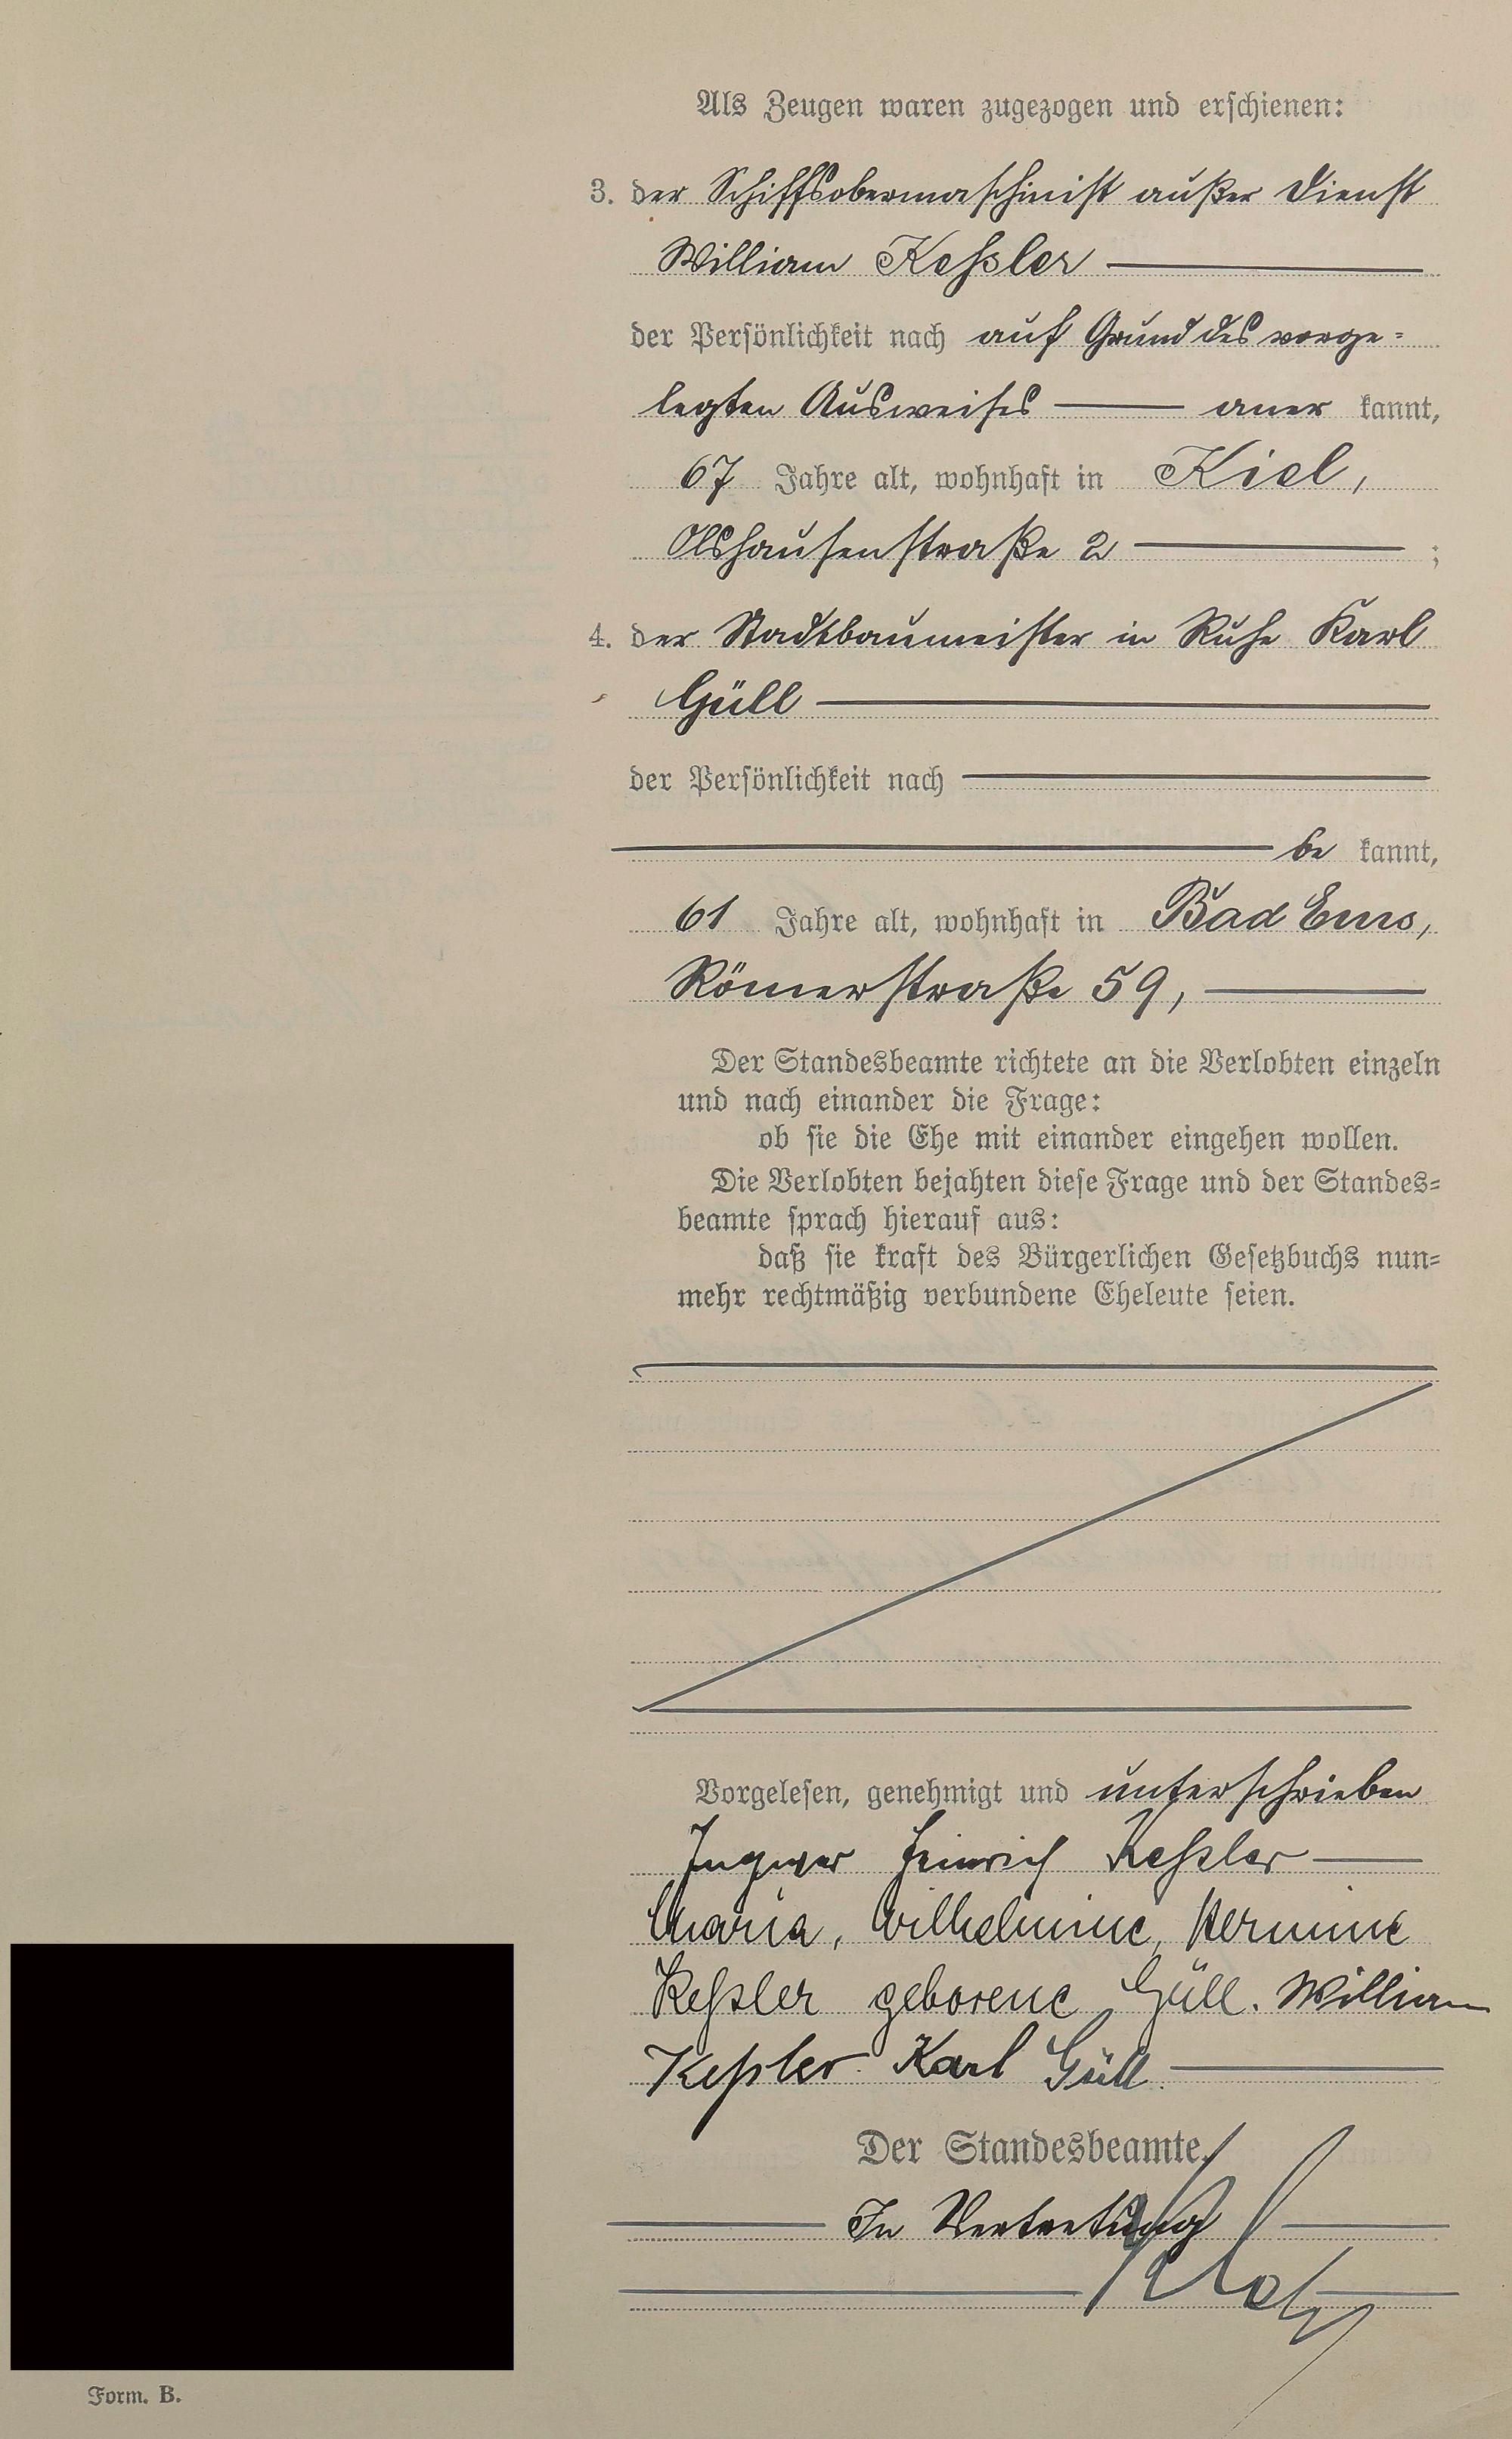 Als Zeugen waren zugezogen und erschienen:
3. der Schiffsobermaschinist außer Dienst
William Keßler
der Persönlichkeit nach auf Grund des vorge=
legten Ausweises aner kannt,
67 Jahre alt, wohnhaft in Kiel,
Olshausenstraße 2 ;
4. der Stadtbaumeister in Ruhe Karl
Güll
der Persönlichkeit nach
be kannt,
61 Jahre alt, wohnhaft in Bad Ems,
Römerstraße 59,
Der Standesbeamte richtete an die Verlobten einzeln
und nach einander die Frage:
ob sie die Ehe mit einander eingehen wollen.
Die Verlobten bejahten diese Frage und der Standes=
beamte sprach hierauf aus:
daß sie kraft des Bürgerlichen Gesetzbuchs nun=
mehr rechtmäßig verbundene Eheleute seien.
Vorgelesen, genehmigt und unterschrieben
Ingwer Heinrich Keßler
Maria, Wilhelmine, Hermine
Keßler geborene Güll. William
Keßler. Karl Güll.
Der Standesbeamte.
In Vertretung
Form. B.